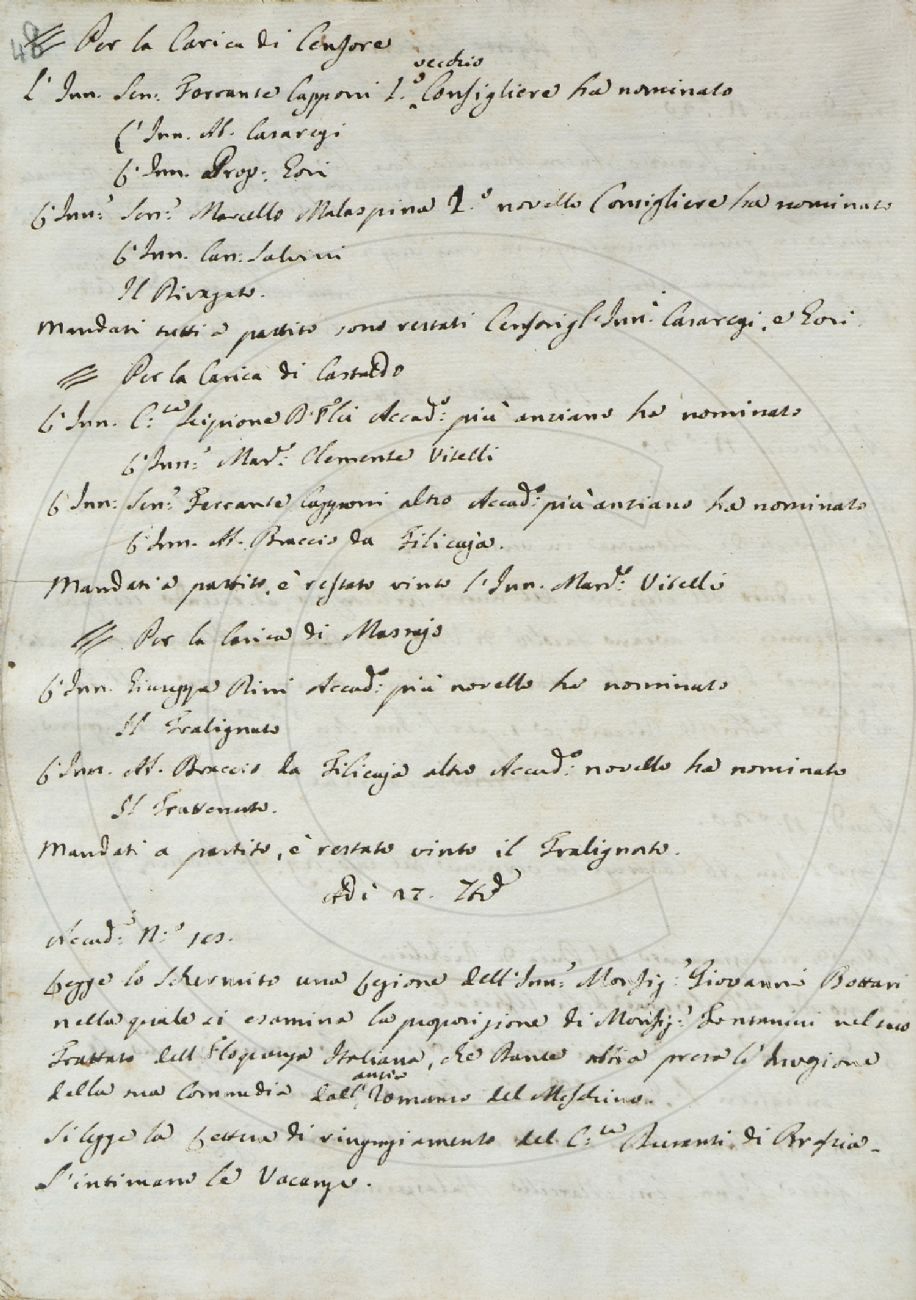 48
Per la Carica di Censore
L'Inn. Sen. Ferrante Capponi 1.º vecchio Consigliere ha nominato
L'Inn. Ab. Casaregi
L'Inn. Prop. Gori
L'Inn. Sen. Marcello Malaspina 1.º novello Consigliere ha nominato
L'Inn. Can. Salvini
Il Rivagato.
Mandati tutti a partito sono restati Censori gl'Inn. Casaregi, e Gori.
Per la Carica di Castaldo
L'Inn. C.te Scipione accad.º più anziano ha nominato
L'Inn. Mar. Clemente Vitelli
L'Inn. Sen. Ferrante Capponi altro Accad.º più anziano ha nominato
L'Inn. Ab. Braccio da Filicaja.
Mandati a partito, è restato vinto l'Inn. Mar. Vitelli
Per la Carica di Massajo
L'Inn. Giuseppe Bini Accad.º più novello ha nominato
Il Tralignato
L'Inn. Ab. Braccio da Filicaja altro Accad.º novello ha nominato
Il Trattenuto.
Mandati a partito, è restato vinto il Tralignato.
Adi 17. 7bre
Accad. N.º 103.
Legge lo Schermito una Legione dell'Inn. Monsig. Giovanni Bottari
nella quale si esamina la proposizione di Monsig. Fontanini nel suo
Trattato dell'Eloquenza Italiana, che Dante abbia presa l'
della sua Commedia dall'antico Romanzo del Meschino.
Si legge la Lettera di ringraziamento del C.te Duranti di Brescia.
S'intimano le Vacanze.